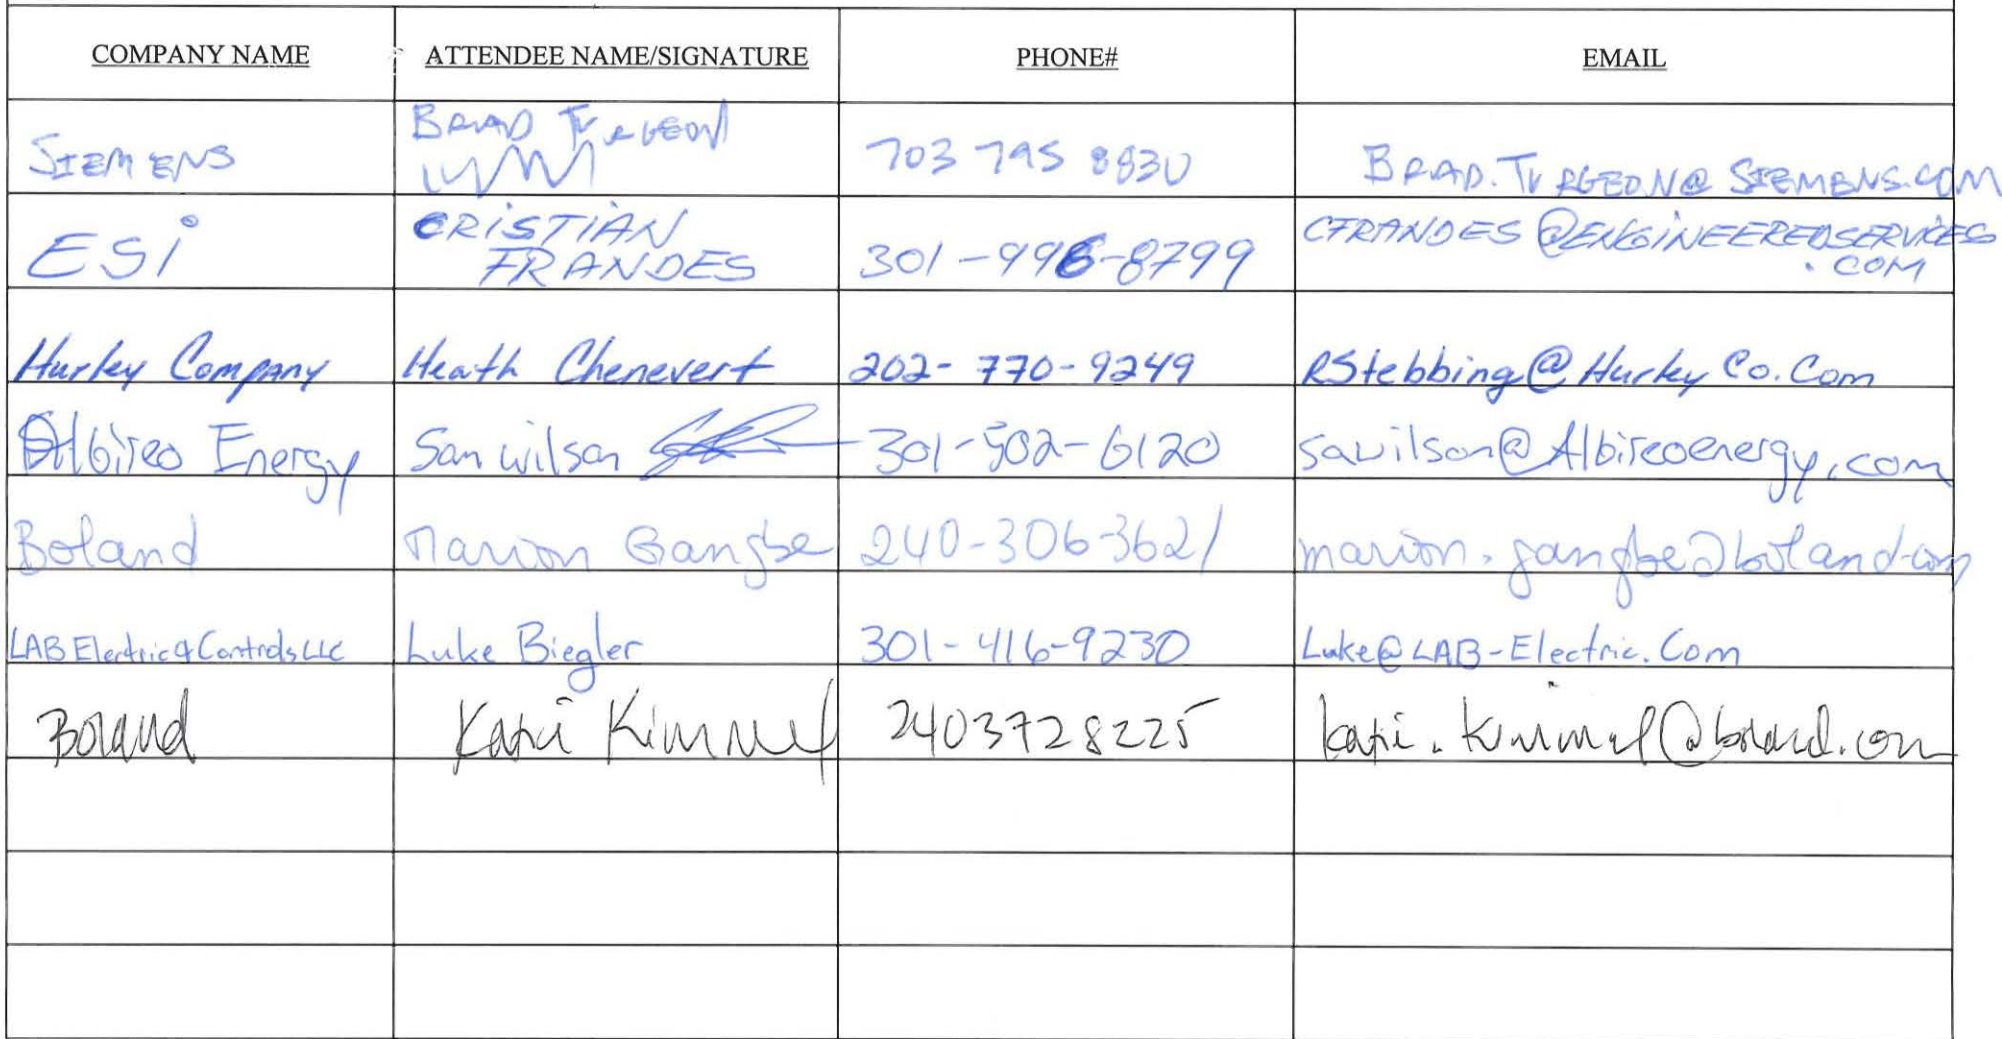 COMPANY NAME ATTENDEE NAME/SIGNATURE PHONE# EMAIL
SIEMENS BRAD TURGEON 703 795 8830 BRAD.TURGEON@SIEMENS.COM
ESi CRiSTiAN FRANDES 301-996-8799 CFRANDES@ENGiNEEREDSERViCES.COM
Hurley Company Heath Chenevert 202-770-9249 RStebbing@HurleyCo.Com
Albireo Energy Sam Wilson 301-502-6120 sawilson@Albireoenergy.com
Boland Marion Gangbe 240-306-3621 marion.gangbe@boland.com
LAB Electric & Controls LLC Luke Biegler 301-416-9230 Luke@LAB-Electric.Com
Boland Katie Kimmel 2403728225 katie.kimmel@boland.com